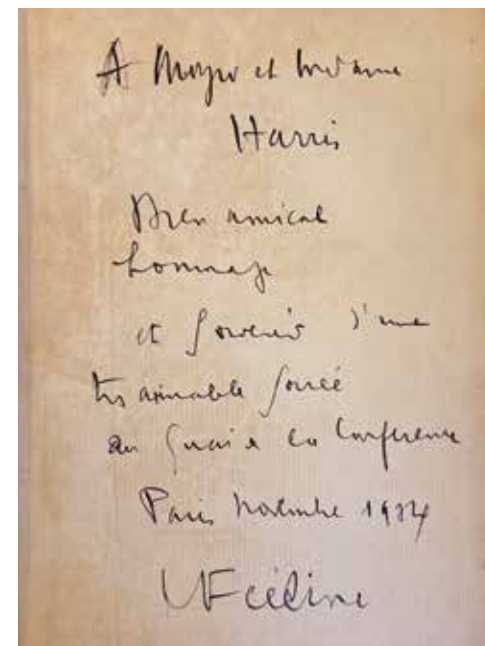 A et madame
Harris
Bien amical
hommage
et souvenir d'une
très aimable soirée
au Quai la Conference
Paris Novembre 1934
LF Céline